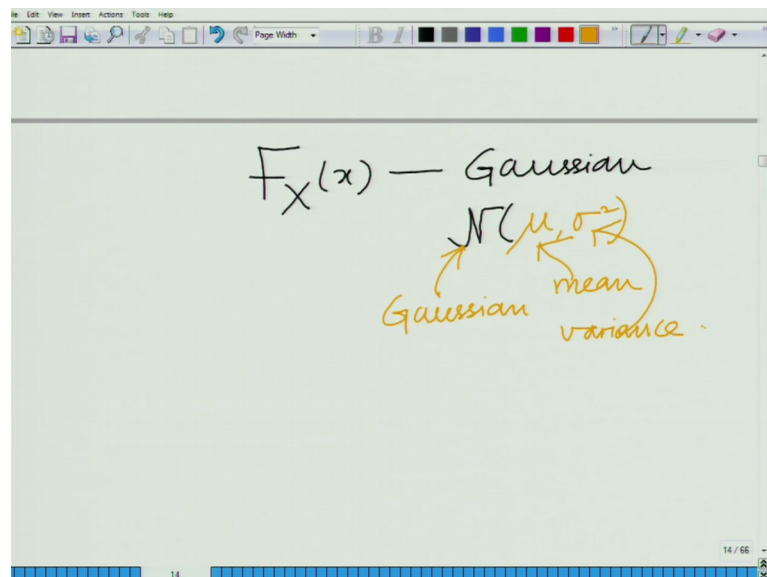 File Edit View Insert Actions Tools Help
Page Width
B I
F_X(x) — Gaussian
N(μ, σ²)
Gaussian
mean
variance.
14 / 66
14